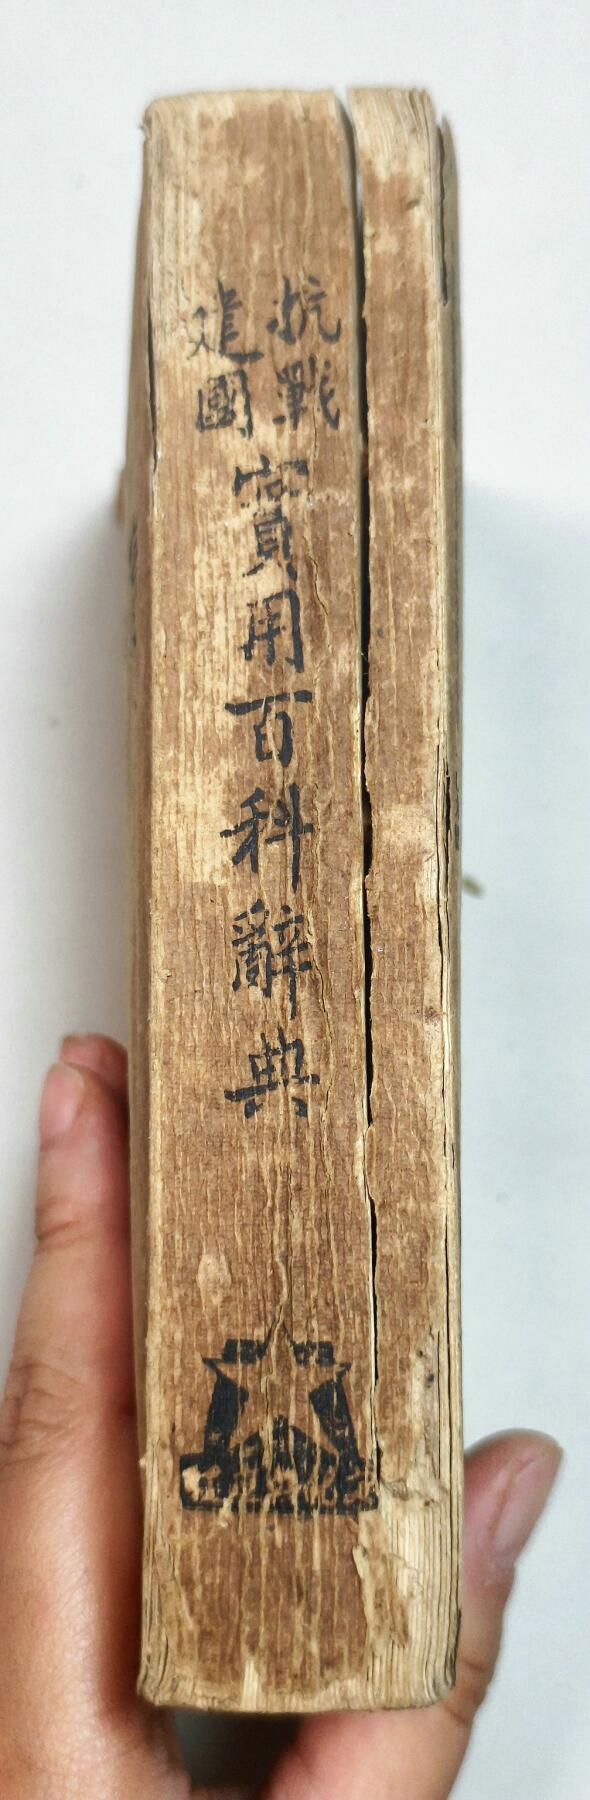 抗戰
建國
實用百科辭典